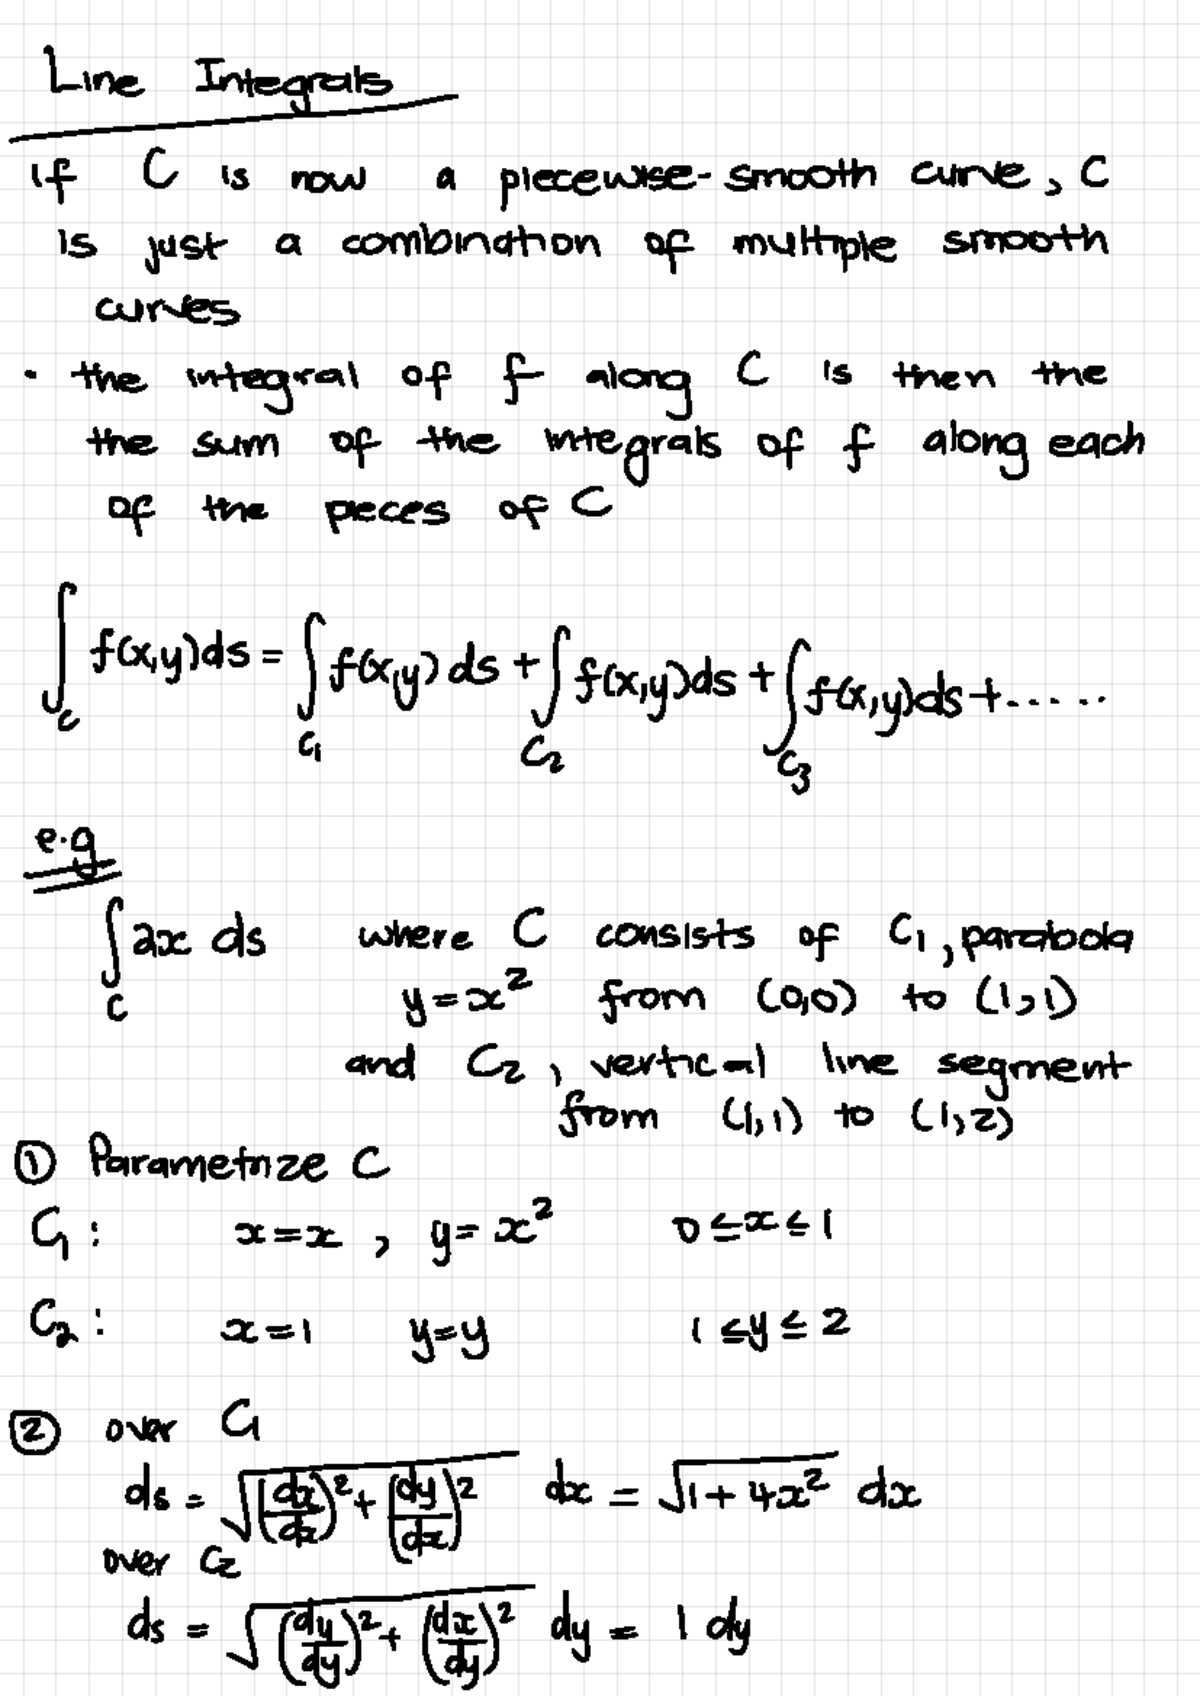 Line Integrals
if C is now a piecewise-smooth curve, C
is just a combination of multiple smooth
curves
• the integral of f along C is then the
the sum of the integrals of f along each
of the pieces of C
∫_C f(x,y)ds = ∫_C₁ f(x,y) ds + ∫_C₂ f(x,y)ds + ∫_C₃ f(x,y)ds + .....
e.g
∫_C 2x ds where C consists of C₁, parabola
y = x² from (0,0) to (1,1)
and C₂, vertical line segment
from (1,1) to (1,2)
① Parametrize C
C₁: x = x, y = x² 0 ≤ x ≤ 1
C₂: x = 1 y = y 1 ≤ y ≤ 2
② over C₁
ds = √((dx/dx)² + (dy/dx)²) dx = √(1 + 4x²) dx
over C₂
ds = √((dy/dy)² + (dx/dy)²) dy = 1 dy